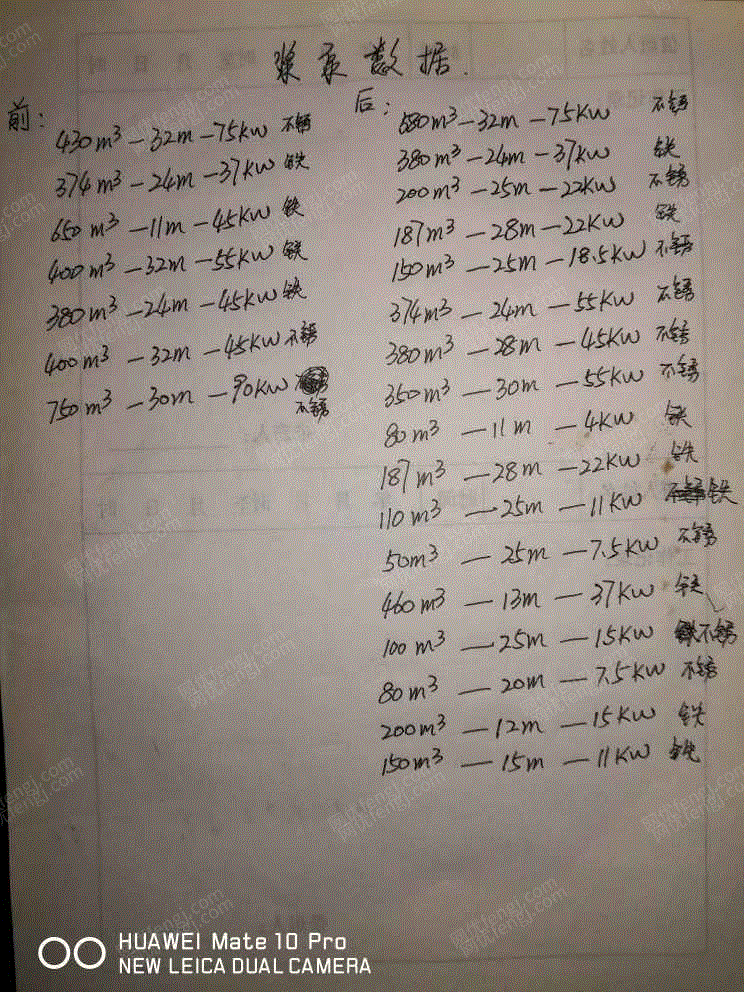 浆泵数据.
前:
430m³-32m-75KW 不锈
374m³-24m-37KW 铁
650m³-11m-45KW 铁
400m³-32m-55KW 铁
380m³-24m-45KW 铁
400m³-32m-45KW 不锈
750m³-30m-90KW
不锈
后:
680m³-32m-75KW 不锈
380m³-24m-37KW 铁
200m³-25m-22KW 不锈
187m³-28m-22KW 铁
150m³-25m-18.5KW 不锈
374m³-24m-55KW 不锈
380m³-28m-45KW 不锈
350m³-30m-55KW 不锈
80m³-11m-4KW 铁
187m³-28m-22KW 铁
110m³-25m-11KW 铁
50m³-25m-7.5KW 不锈
460m³-13m-37KW 铁
100m³-25m-15KW 不锈
80m³-20m-7.5KW 不锈
200m³-12m-15KW 铁
150m³-15m-11KW 铁
HUAWEI Mate 10 Pro
NEW LEICA DUAL CAMERA